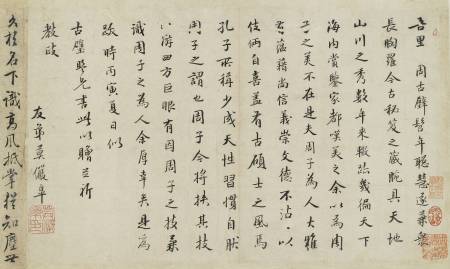 吾里 周古辟髫年聰慧遂兼衆
長胸羅今古秘笈之藏腕具天地
山川之秀數年來轍跡幾徧天下
海内賞鑒家都嘆美之余以為周
子之美不在是夫周子為人大雅
醖藉尚信義崇文德不沾沾以
伎倆自喜蓋有古碩士之風焉
孔子所稱少成天性習慣自狀
周子之謂也周子今將挾其技
以游四方巨眼有因周子之技兼
識周子之為人余厚幸矣是為
跋時丙寅夏日似
古辟賢兄書此以贈並祈
教政
友弟莫儼皋
久於名下識高風抵掌 知塵世